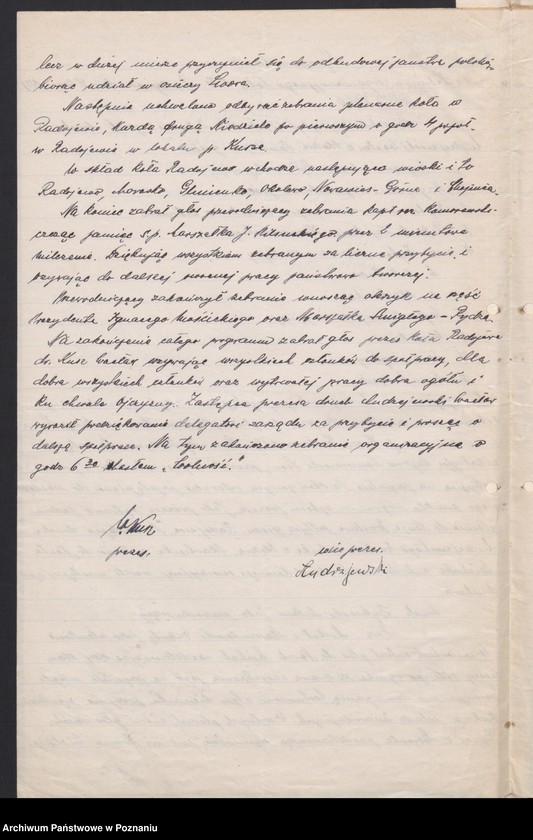 lecz w dużej mierze przyczynił się do odbudowej państwa polski,
biorąc udział w
Następnie uchwalono odbywać zebrania plenarne koła w
Radojewie, każdą drugą Niedzielę po pierwszym o godz 4 popoł.
w Radojewie w lokalu p. Kusza
W skład koła Radojewo wchodzą następujące wioski i to
Radojewo, Morasko, Glinienko, Okolewo, i
Na koniec zabrał głos przewodniczący zebrania kapt rez.
cząc pamięć ś.p. Marszałka J. Piłsudskiego przez 1 minutowe
milczenie. Dziękując wszystkim zebranym za liczne przybycie, i
wzywając do dalszej owocnej pracy państwowo twórczej.
Przewodniczący zakończył zebranie wnosząc okrzyk na cześć
Prezydenta Ignacego Mościckiego oraz Marszałka Śmigłego-Rydza
Na zakończenie całego programu zabrał głos prezes koła Radojewo
dr. Kusz Wacław wzywając wszystkich członków do spółpracy, dla
dobra wszystkich członków oraz wytrwałej pracy dobra ogółu i
ku chwale Ojczyzny. Zastępca prezesa druch Andrzejewski Wacław
wyraził podziękowanie delegatom zarządu za przybycie i prosząc o
dalszą spółpracę. Na tym zakończono zebranie organizacyjne o
godz 6 30 hasłem "Wolność."
W. Kusz
prezes.
wiceprezes.
Andrzejewski
Archiwum Państwowe w Poznaniu